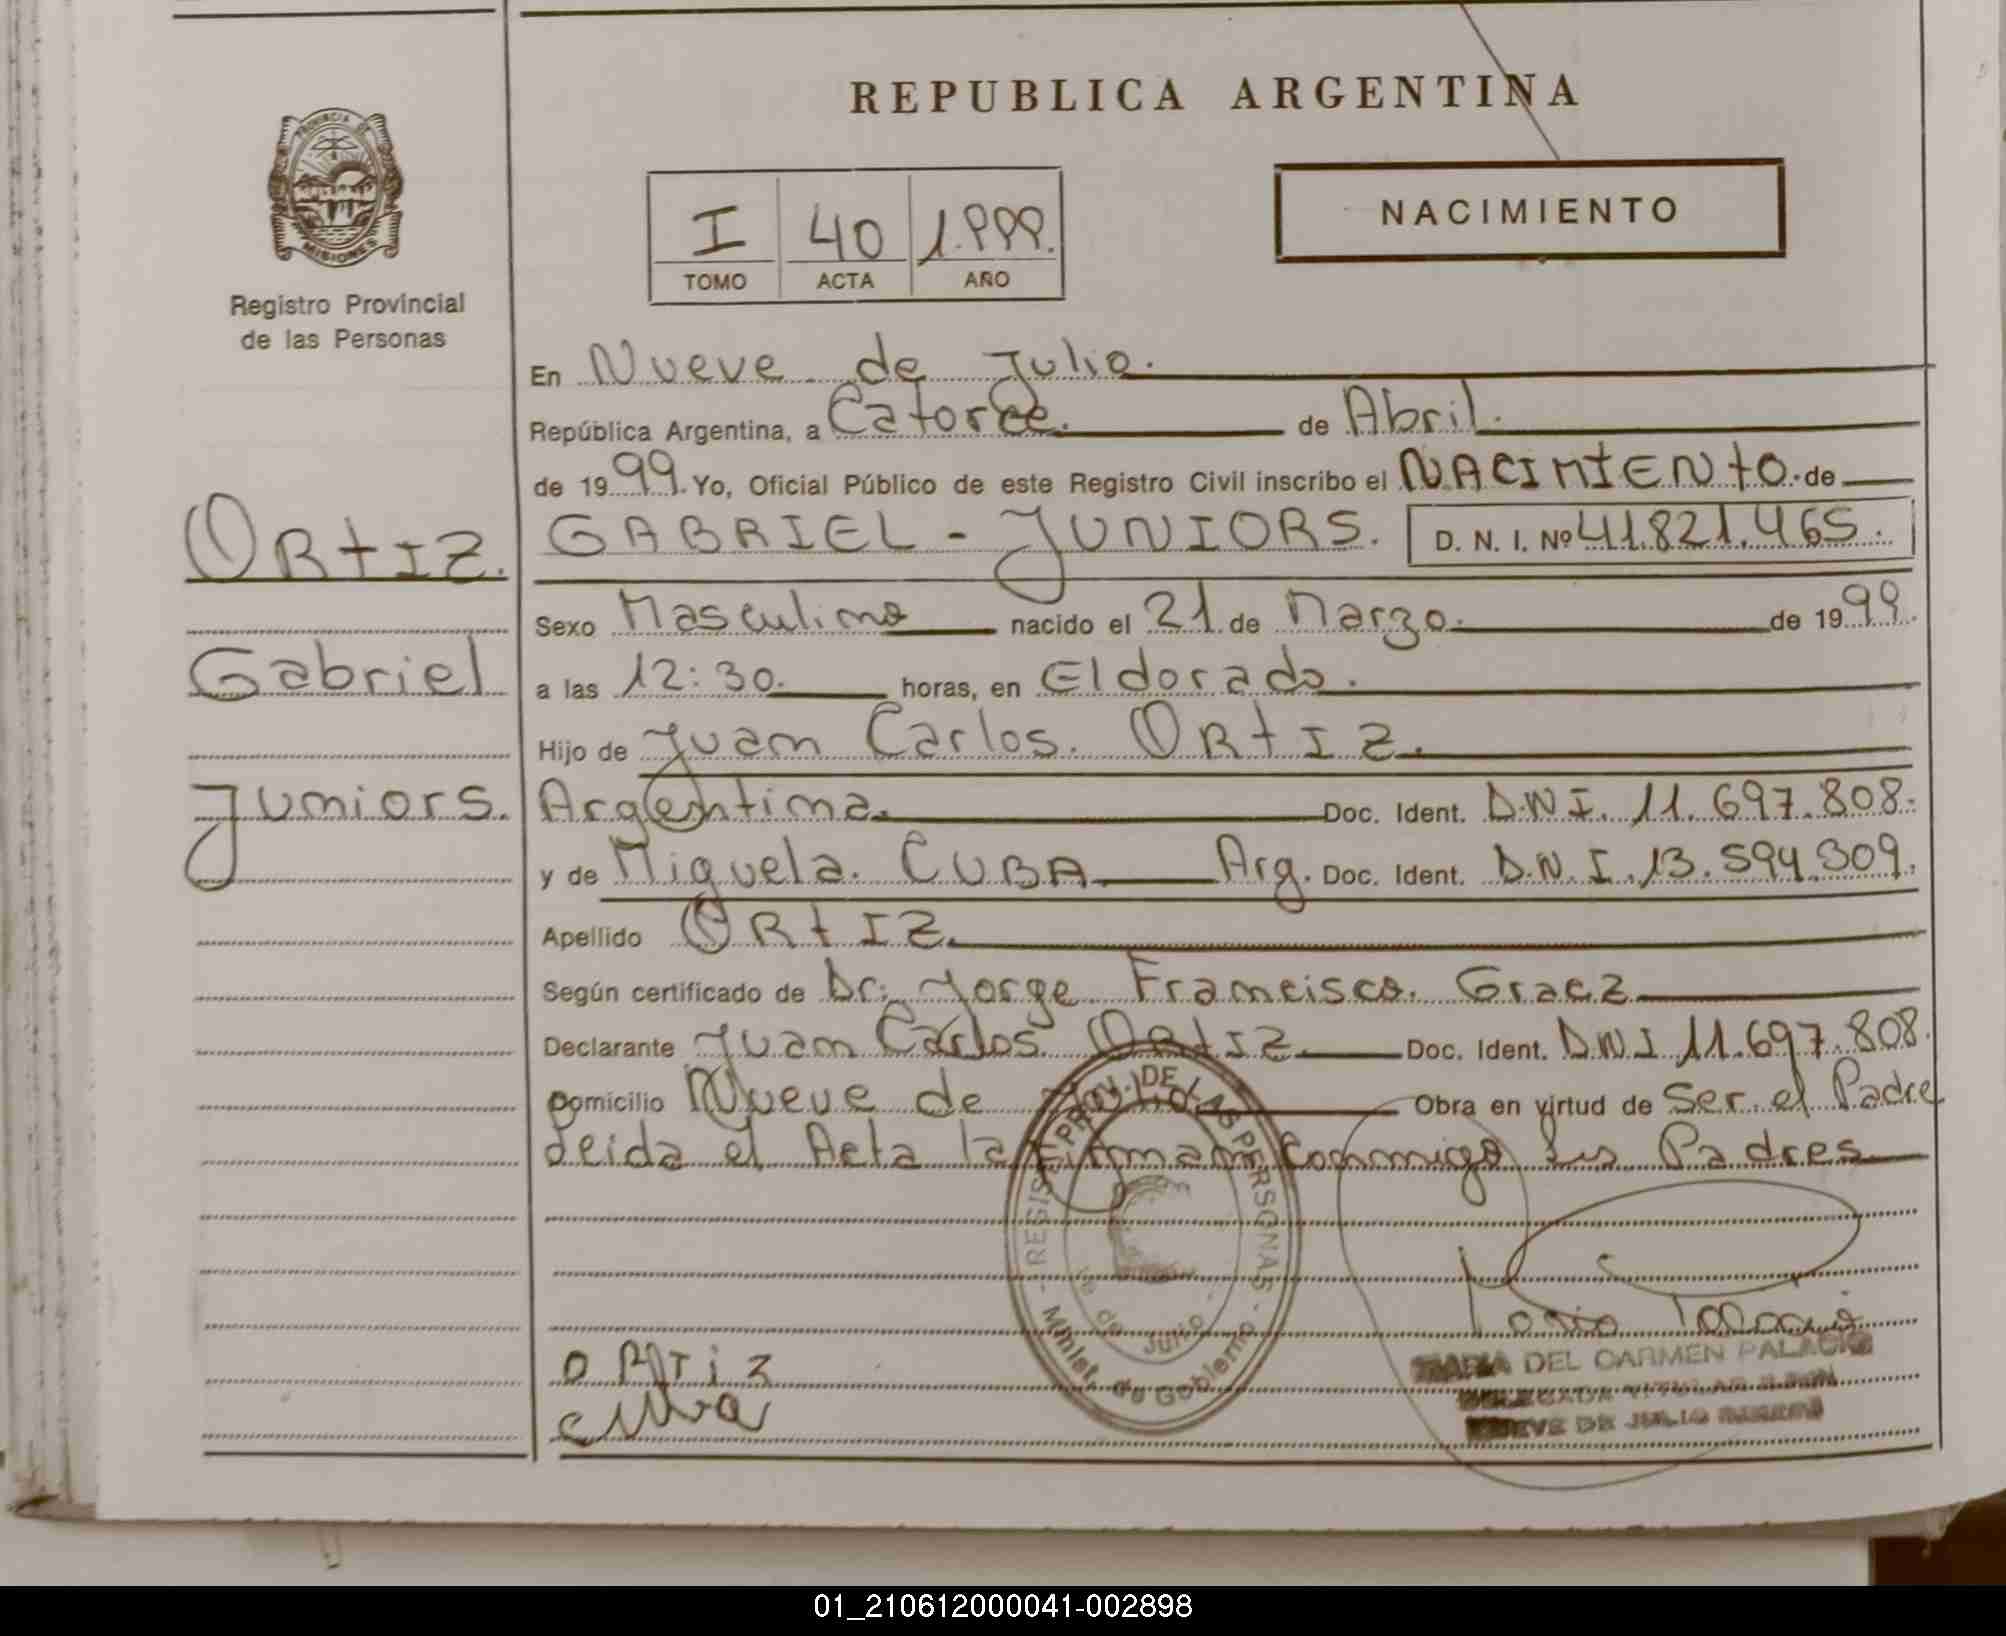 REPUBLICA ARGENTINA
PROVINCIA DE
MISIONES
Registro Provincial
de las Personas
I 40 1.999.
TOMO ACTA AÑO
NACIMIENTO
En Nueve de Julio.
República Argentina, a Catorce. de Abril.
de 1999. Yo, Oficial Público de este Registro Civil inscribo el NACIMIENTO. de
ORTIZ.
Gabriel
Juniors.
GABRIEL - JUNIORS. D. N. I. Nº 41.821.465.
Sexo Masculino nacido el 21 de Marzo. de 1999.
a las 12:30. horas, en Eldorado.
Hijo de Juan Carlos. ORTIZ.
Argentina. Doc. Ident. D.N.I. 11.697.808.
y de Miguela. CUBA Arg. Doc. Ident. D.N.I. 13.594.309.
Apellido ORTIZ.
Según certificado de Dr. Jorge Francisco. Graez
Declarante Juan Carlos Ortiz Doc. Ident. D.N.I 11.697.808.
Domicilio Nueve de Julio. Obra en virtud de Ser el Padre
Leida el Acta la Firman Conmigo sus Padres
REGIST. PROV. DE LAS PERSONAS
de Julio
Minist. de Gobierno
ORTiz
MARIA DEL CARMEN PALACIO
DELEGADA TITULAR
NUEVE DE JULIO
01_210612000041-002898